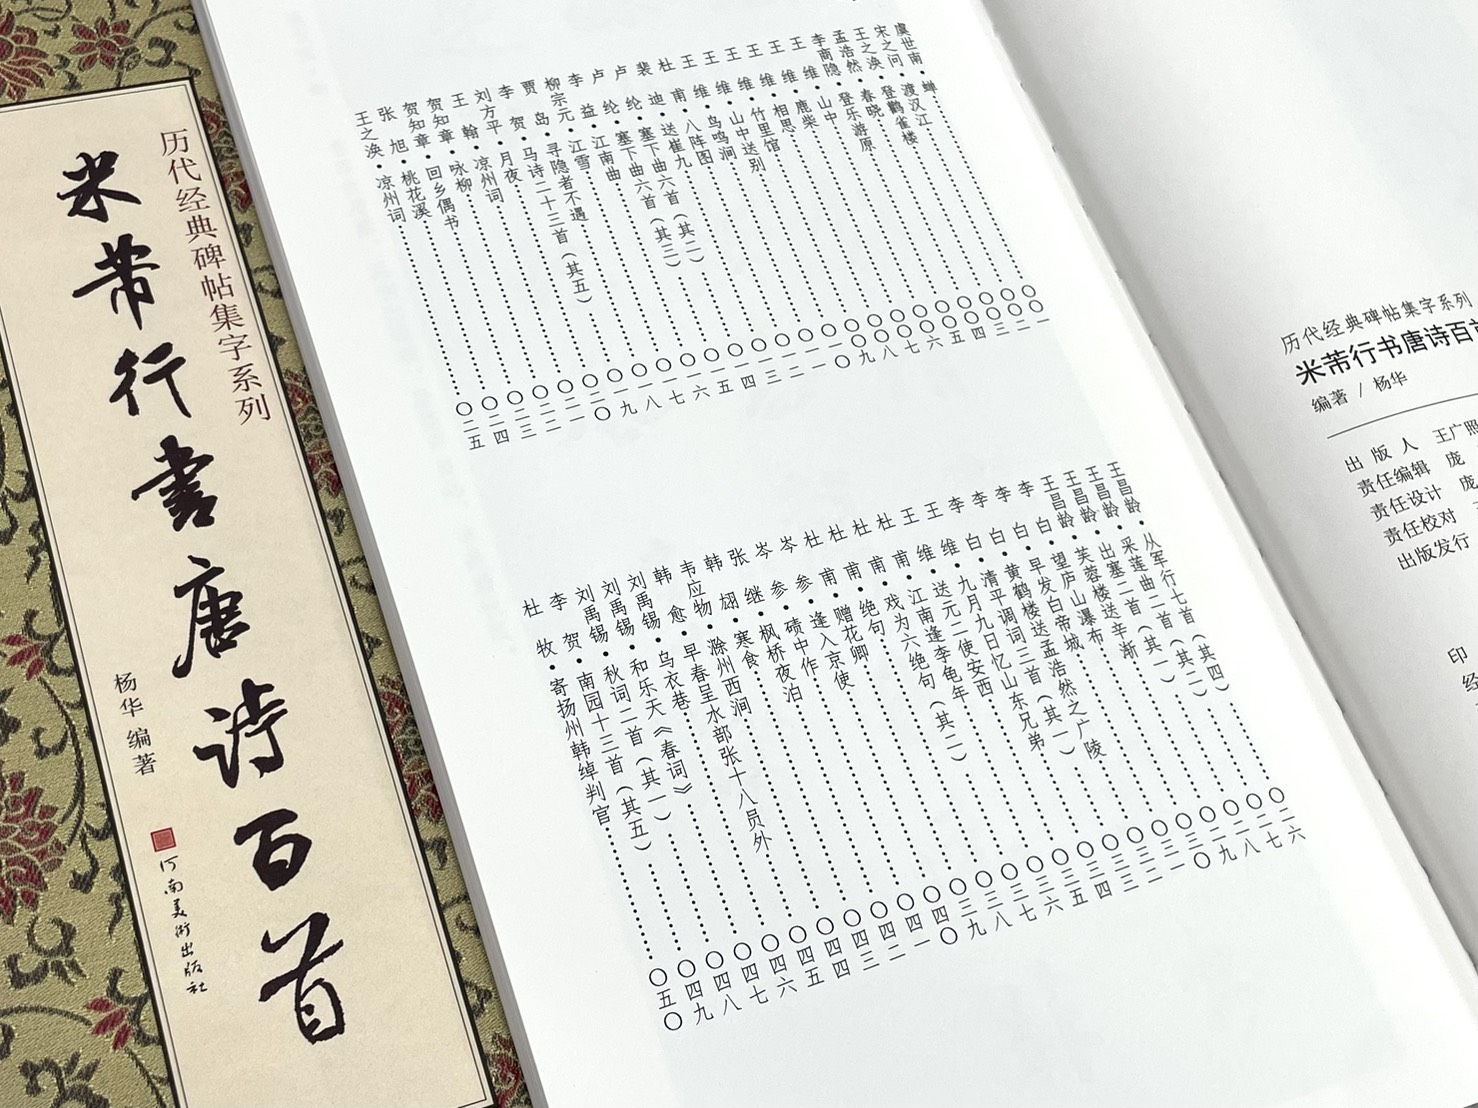 历代经典碑帖集字系列
米芾行书唐诗百首
杨华 编著
河南美术出版社
虞世南·蝉……〇〇一
宋之问·渡汉江……〇〇二
王之涣·登鹳雀楼……〇〇三
孟浩然·春晓……〇〇四
李商隐·登乐游原……〇〇五
王维·山中……〇〇六
王维·鹿柴……〇〇七
王维·相思……〇〇八
王维·竹里馆……〇〇九
王维·山中送别……〇一〇
王维·鸟鸣涧……〇一一
杜甫·八阵图……〇一二
裴迪·送崔九……〇一三
卢纶·塞下曲六首（其二）……〇一四
卢纶·塞下曲六首（其三）……〇一五
李益·江南曲……〇一六
柳宗元·江雪……〇一七
贾岛·寻隐者不遇……〇一八
李贺·马诗二十三首（其五）……〇一九
刘方平·月夜……〇二〇
王翰·凉州词……〇二一
贺知章·咏柳……〇二二
贺知章·回乡偶书……〇二三
张旭·桃花溪……〇二四
王之涣·凉州词……〇二五
王昌龄·从军行七首（其四）……〇二六
王昌龄·采莲曲二首（其二）……〇二七
王昌龄·出塞二首（其一）……〇二八
王昌龄·芙蓉楼送辛渐……〇二九
李白·望庐山瀑布……〇三〇
李白·早发白帝城……〇三一
李白·黄鹤楼送孟浩然之广陵……〇三二
李白·清平调词三首（其一）……〇三三
王维·九月九日忆山东兄弟……〇三四
王维·送元二使安西……〇三五
杜甫·江南逢李龟年……〇三六
杜甫·戏为六绝句（其二）……〇三七
杜甫·绝句……〇三八
杜甫·赠花卿……〇三九
岑参·逢入京使……〇四〇
岑参·碛中作……〇四一
张继·枫桥夜泊……〇四二
韩翃·寒食……〇四三
韦应物·滁州西涧……〇四四
韩愈·早春呈水部张十八员外……〇四五
刘禹锡·乌衣巷……〇四六
刘禹锡·和乐天《春词》……〇四七
刘禹锡·秋词二首（其一）……〇四八
李贺·南园十三首（其五）……〇四九
杜牧·寄扬州韩绰判官……〇五〇
历代经典碑帖集字系列
米芾行书唐诗百
编著 / 杨华
出版人 王广照
责任编辑 庞
责任设计 庞
责任校对
出版发行
印
经